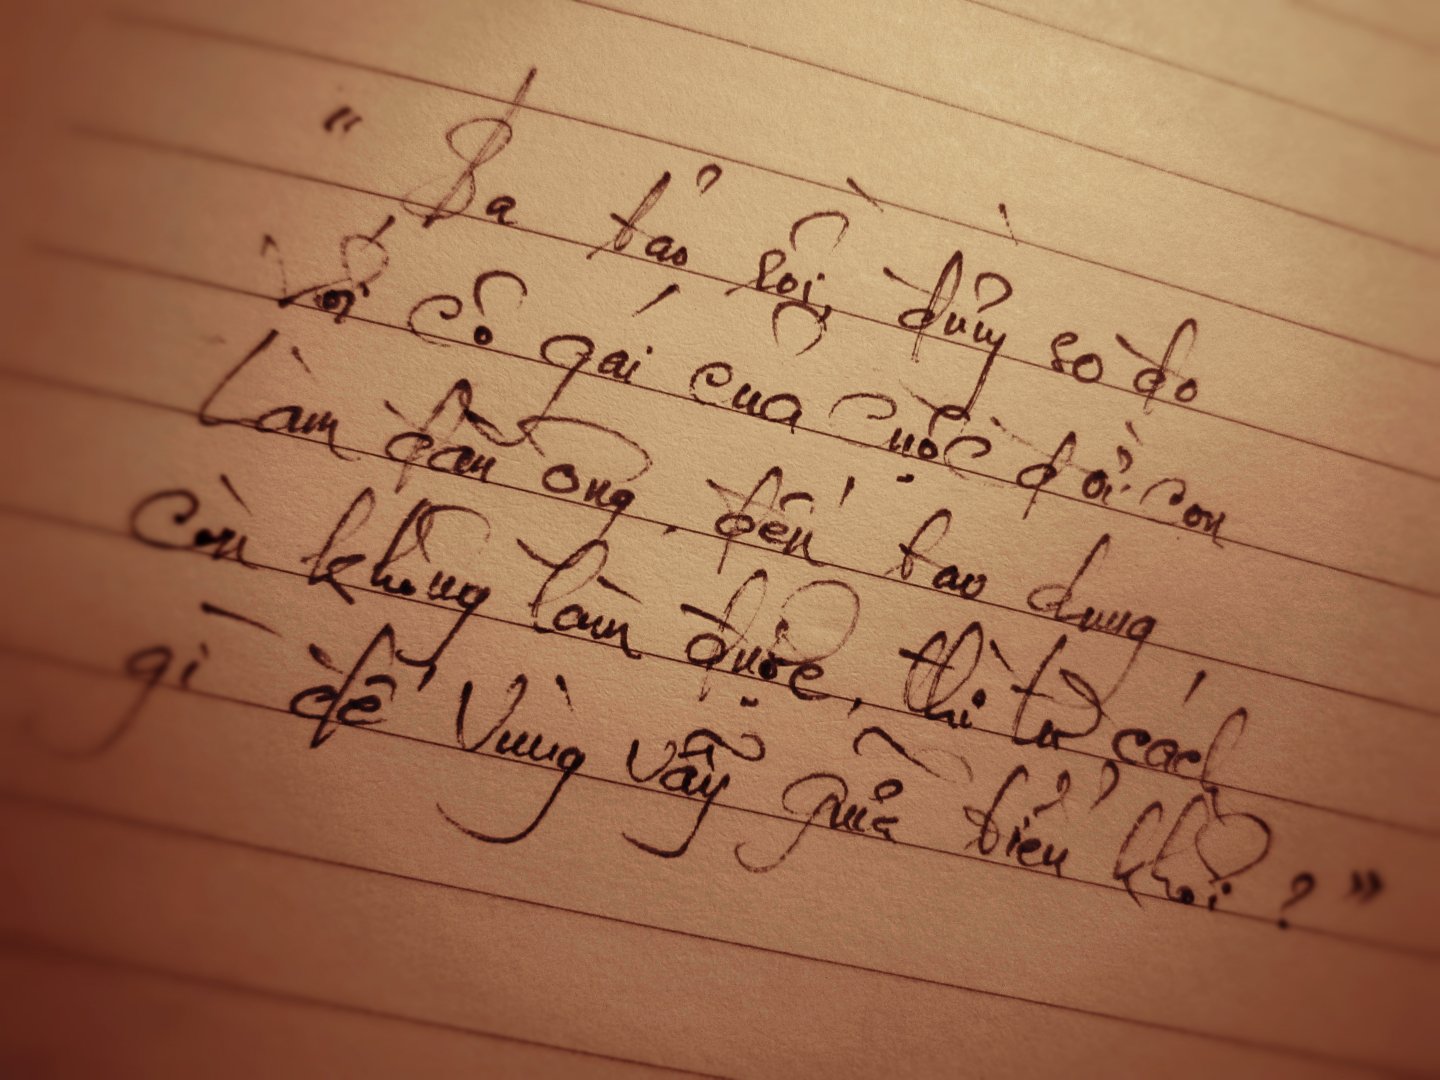 “ Ba bảo rồi, đừng so đo
Với cô gái của cuộc đời con
Làm đàn ông, đến bao dung
còn không làm được, thì tư cách
gì để vùng vẫy giữa biển khơi ? ”